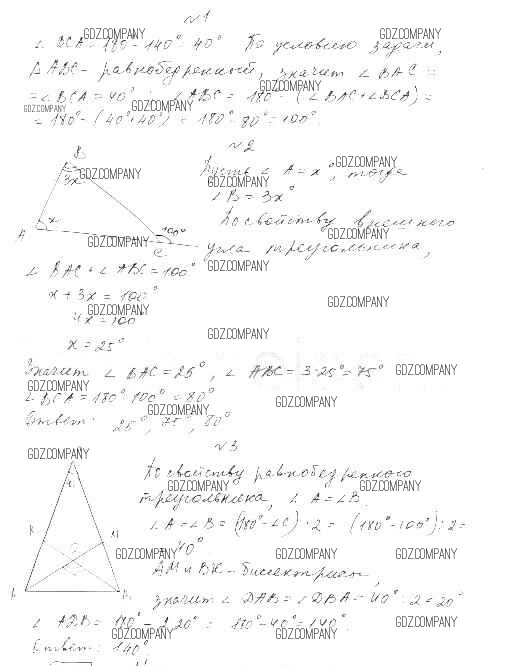 №1
∠ BCA = 180 - 140° = 40° По условию задачи,
Δ ABC - равнобедренный, значит ∠ BAC =
= ∠BCA = 40° ∠ABC = 180 - (∠BAC+∠BCA) =
= 180° - (40°+40°) = 180° - 80° = 100°
№2
Пусть ∠ A = x°, тогда
∠B = 3x°
По свойству внешнего
угла треугольника,
B
3x
A
x
100°
C
∠ BAC + ∠ ABC = 100°
x + 3x = 100°
4x = 100
x = 25°
Значит ∠ BAC = 25°, ∠ ABC = 3·25° = 75°
∠ BCA = 180° 100° = 80°
Ответ: 25°, 75°, 80°
№3
По свойству равнобедренного
треугольника, ∠ A = ∠B
∠A = ∠B = (180° - ∠C) : 2 = (180° - 100°) : 2 =
= 40°
AM и BK - биссектрисы,
значит ∠ DAB = ∠ DBA = 40° : 2 = 20°
C
K
M
A
B
∠ ADB = 180° - 2·20° = 180° - 40° = 140°
Ответ: 140°
GDZ.COMPANY